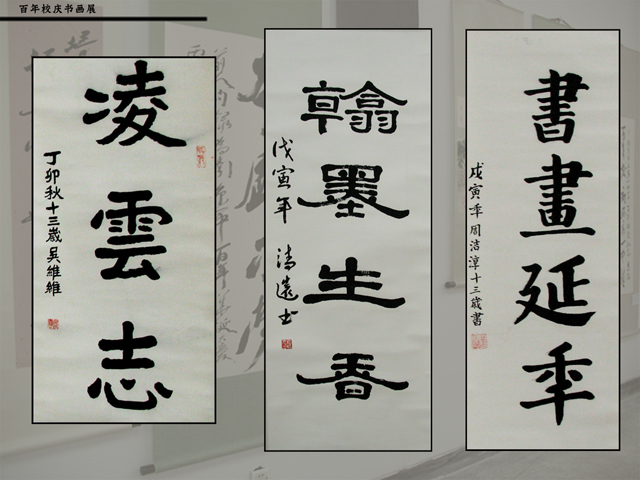 百年校庆书画展
凌雲志
丁卯秋十三歲吴維維
翰墨生香
戊寅年 清遠书
書畫延年
戊寅年周洁淳十三歲書